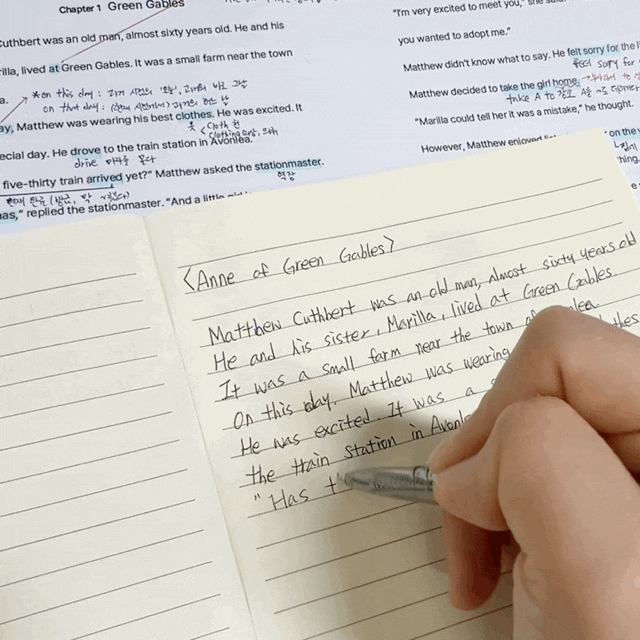 Chapter 1 Green Gables
Cuthbert was an old man, almost sixty years old. He and his
rilla, lived at Green Gables. It was a small farm near the town
a.
*on this day :
on that day :
ay, Matthew was wearing his best clothes. He was excited. It
옷
cloth 천
clothing
ecial day. He drove to the train station in Avonlea.
drive
five-thirty train arrived yet?" Matthew asked the stationmaster.
역장
nas," replied the stationmaster. "And a little
"I'm very excited to meet you,"
you wanted to adopt me."
Matthew didn't know what to say. He felt sorry for the
feel sorry for
Matthew decided to take the girl home.
take A to
"Marilla could tell her it was a mistake," he thought.
However, Matthew enjoyed
on the
thing.
<Anne of Green Gables>
Matthew Cuthbert was an old man, almost sixty years old
He and his sister, Marilla, lived at Green Gables.
It was a small farm near the town
On this day, Matthew was wearing
He was excited. It was a
the train station in Avonlea
"Has t